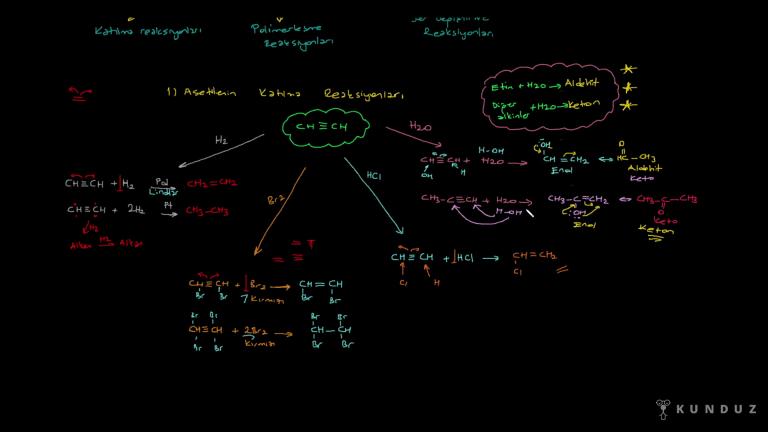 Katılma reaksiyonları
Polimerleşme
Reaksiyonları
Reaksiyonları
1) Asetilenin Katılma Reaksiyonları
Etin + H2O → Aldehit
Diğer alkinler + H2O → Keton
CH ≡ CH
H2
Br2
HCl
H2O
CH ≡ CH + 1H2 → CH2 = CH2
Pd
Lindlar
CH ≡ CH + 2H2 → CH3 - CH3
Pt
H2
Alken H2 → Alkan
CH ≡ CH + H2O → CH = CH2 ↔ HC - CH3
H-OH
OH
H
OH
Enol
O
Aldehit
Keto
CH3 - C ≡ CH + H2O → CH3 - C = CH2 ↔ CH3 - C - CH3
H-OH
OH
Enol
O
Keto
Keton
CH ≡ CH + 1HCl → CH = CH2
Cl
H
Cl
CH ≡ CH + 1Br2 → CH = CH
Br Br
Kırmızı
Br Br
Br Br
CH ≡ CH + 2Br2 → CH - CH
Br Br
Kırmızı
Br Br
Br Br
KUNDUZ